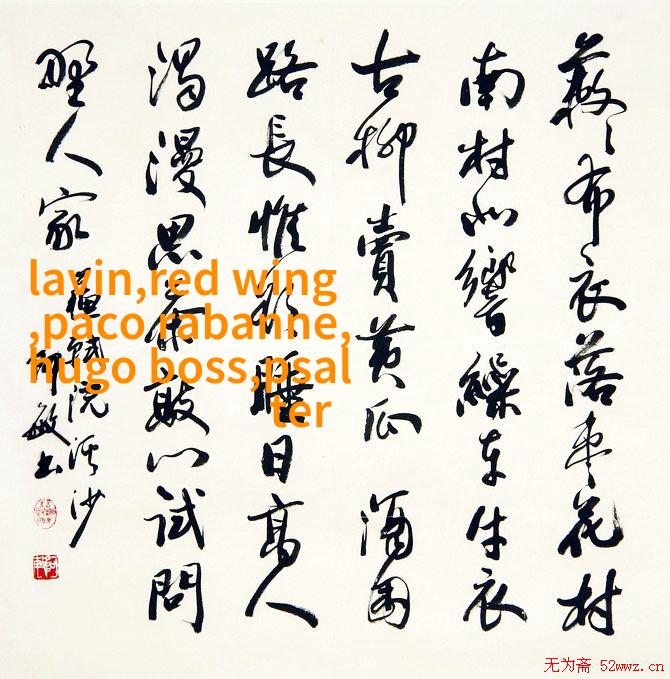 蔌〻布衣落棗花村
南村北響繰車牛衣
古柳賣黄瓜 酒困
路長惟欲睡日高人
渴漫思茶敲门試問
野人家 蘇軾浣溪沙
敏书
lavin,red wing
,paco rabanne,
hugo boss,psal
ter
无为斋 52wwz.cn